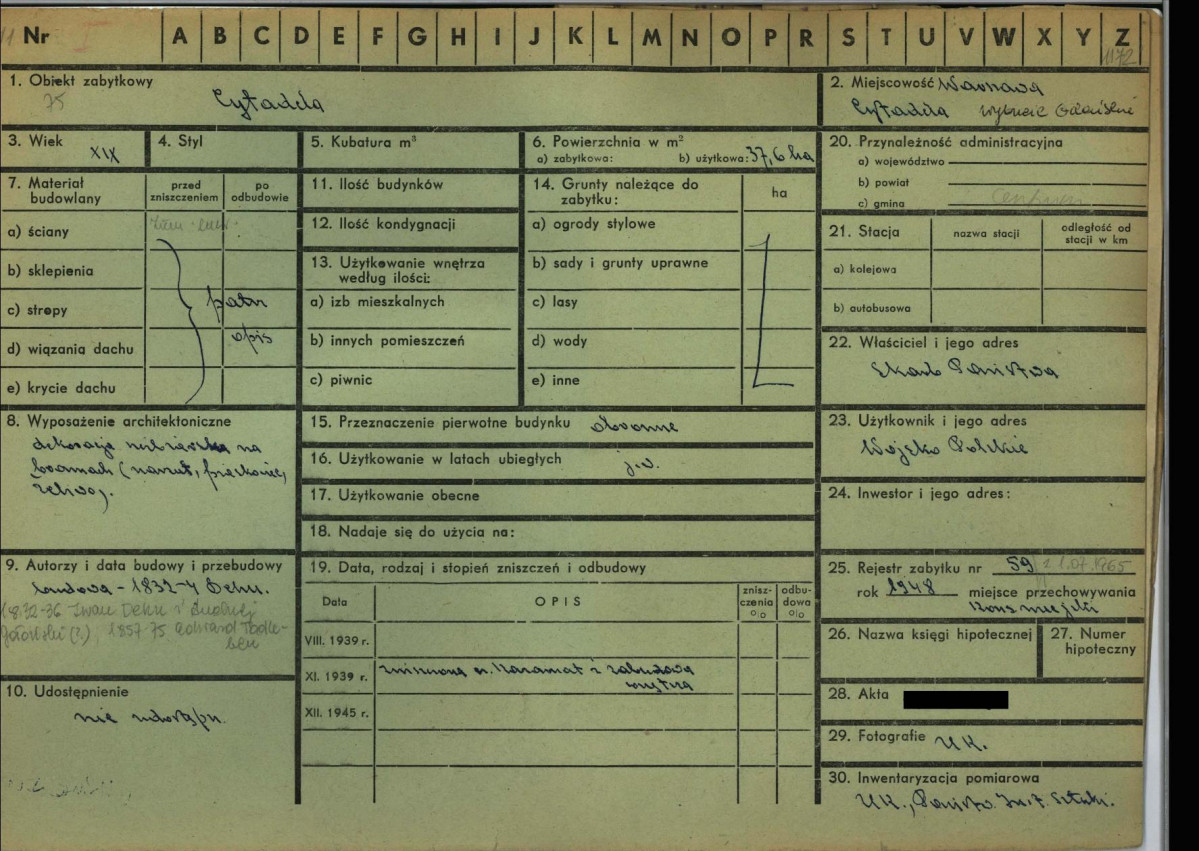 Nr I A B C D E F G H I J K L M N O P R S T U V W X Y Z
1172
1. Obiekt zabytkowy
75
Cytadela
2. Miejscowość Warszawa
Cytadela wybrzeże Gdańskie
3. Wiek XIX
4. Styl
5. Kubatura m³
6. Powierzchnia w m²
a) zabytkowa: b) użytkowa: 37,6 ha
20. Przynależność administracyjna
a) województwo
b) powiat
c) gmina Centrum
7. Materiał budowlany
przed zniszczeniem
po odbudowie
a) ściany
b) sklepienia
c) stropy
d) wiązania dachu
e) krycie dachu
patrz
opis
11. Ilość budynków
12. Ilość kondygnacji
13. Użytkowanie wnętrza
według ilości:
a) izb mieszkalnych
b) innych pomieszczeń
c) piwnic
14. Grunty należące do
zabytku:
ha
a) ogrody stylowe
b) sady i grunty uprawne
c) lasy
d) wody
e) inne
21. Stacja
nazwa stacji
odległość od
stacji w km
a) kolejowa
b) autobusowa
22. Właściciel i jego adres
Skarb Państwa
8. Wyposażenie architektoniczne
dekoracja rzeźbiarska na
bramach
15. Przeznaczenie pierwotne budynku obronne
16. Użytkowanie w latach ubiegłych j.w.
17. Użytkowanie obecne
18. Nadaje się do użycia na:
23. Użytkownik i jego adres
Wojsko Polskie
24. Inwestor i jego adres:
9. Autorzy i data budowy i przebudowy
budowa - 1832-4 Dehn.
1832-36 Iwan Dehn i Andrzej
1857-75 Edward Todle-
ben
10. Udostępnienie
nie udostępn.
19. Data, rodzaj i stopień zniszczeń i odbudowy
Data
OPIS
znisz-
czenia
%
odbu-
dowa
%
VIII. 1939 r.
XI. 1939 r. zniszczone n. kazamat i zabudowa
wnętrza
XII. 1945 r.
25. Rejestr zabytku nr 59 z 1.07.1965
rok 1948 miejsce przechowywania
Kons miejski
26. Nazwa księgi hipotecznej
27. Numer
hipoteczny
28. Akta
29. Fotografie U.K.
30. Inwentaryzacja pomiarowa
U.K., Państw. Inst. Sztuki.